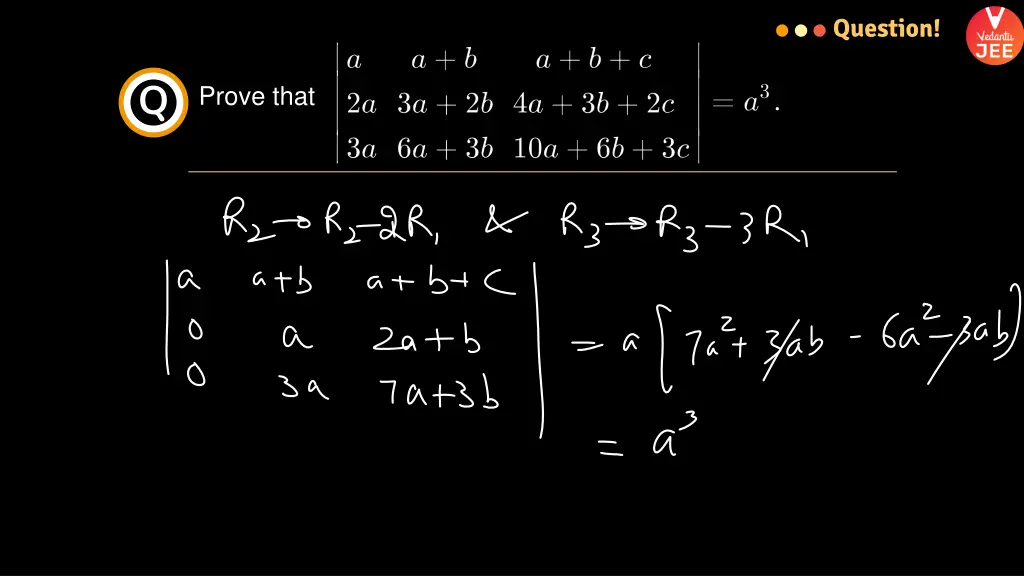 Question!
Vedantu
JEE
Q Prove that | a a + b a + b + c |
| 2a 3a + 2b 4a + 3b + 2c | = a³.
| 3a 6a + 3b 10a + 6b + 3c |
R₂ → R₂ – 2R₁ & R₃ → R₃ – 3R₁
| a a+b a+b+c |
| 0 a 2a+b | = a [7a² + 3ab - 6a² - 3ab]
| 0 3a 7a+3b |
= a³